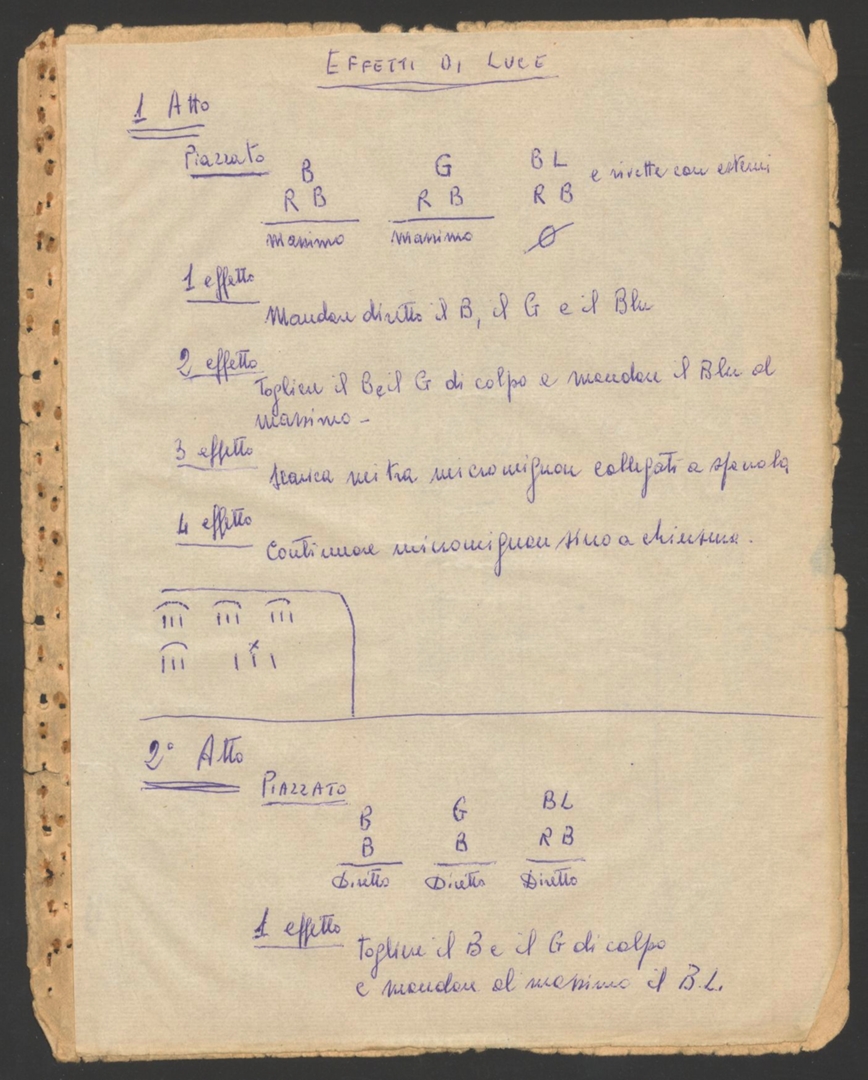 EFFETTI DI LUCE
1 Atto
Piazzato
B G BL e con esterni
R B R B R B
Massimo Massimo Ø
1 effetto
Mandare diretto il B, il G e il Blu
2 effetto
Togliere il B e il G di colpo e mandare il Blu al
massimo -
3 effetto
micromignon collegati a
4 effetto
Continuare micromignon sino a chiusura.
2° Atto
PIAZZATO
B G BL
B B R B
Diretto Diretto Diretto
1 effetto
Togliere il B e il G di colpo
e mandare al massimo il B.L.